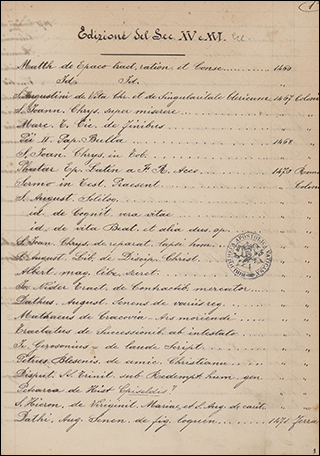 1
Edizione del Sec. XV e XVI. ecc.
Matth de Cracov tract, ration et Conse 1460
Id. Id.
S. Augustini de Vita Chr. et de Singularitate Clericorum 1467 Colonia
S. Joann. Chrys. super miserere
Marc. T. Cic. de finibus
Pii II. Pap. Bulla 1468
S. Joan. Chrys. in Eob.
Ep. Latin a F. R. Acco 1470
Sermo in Fest. Praesent Colon
S. August. Soliloq.
id. de Cognit vera vitae
id. de Vita Beat. et alia
S. Joan. Chrys. de reparat. lapsi hom
S. August. Lib. de Discip. Christ.
Albert mag. Libe secret.
Jo. Nider Tract. de Contractib. mercator
Dathus August. Senens de variis reg
Mathaeus de Cracovia Ars moriendi
Tractatus de Successionib ab intestato
Jo. Gersonius de laude Script
Petrus Blesenis de amic. Christiana
Disput. SS. Trinit sub Redempt. hum gen
Petrarca de Hist Griseldis?
S. Hieron. de Virginit. Mariae, et S. Aug. de carit
Dathi, Aug. Senen. de fig. loquen 1471 Ferra